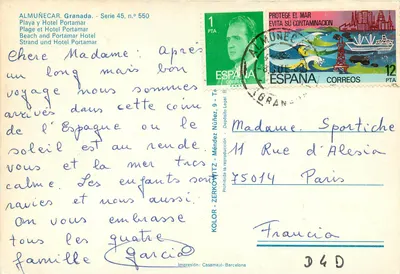 ALMUÑECAR. Granada. - Serie 45, n.º 550
Playa y Hotel Portamar
Plage et Hotel Portamar
Beach and Portamar Hotel
Strand und Hotel Portamar
Chere Madame: Après
un long mais bon
voyage nous sommes
arrivés dans cette coin
de l'Espagne ou le
soleil est au rende
vous et la mer tres
calme. Les enfants sont
ravies et nous aussi.
On vous embrasse
tous les quatre
famille Garcia
KOLOR - ZERKOWITZ - Méndez Núñez, 9 - 
Prohibida la reproducción
Impresión: Casamajó - Barcelona
1
PTA
ESPAÑA
PROTEGE EL MAR
EVITA SU CONTAMINACION
ESPAÑA CORREOS 12
PTA
ALMUÑECAR
(GRANADA)
Madame Sportiche
11 Rue d'Alesia
75014 Paris
Francia
D4D